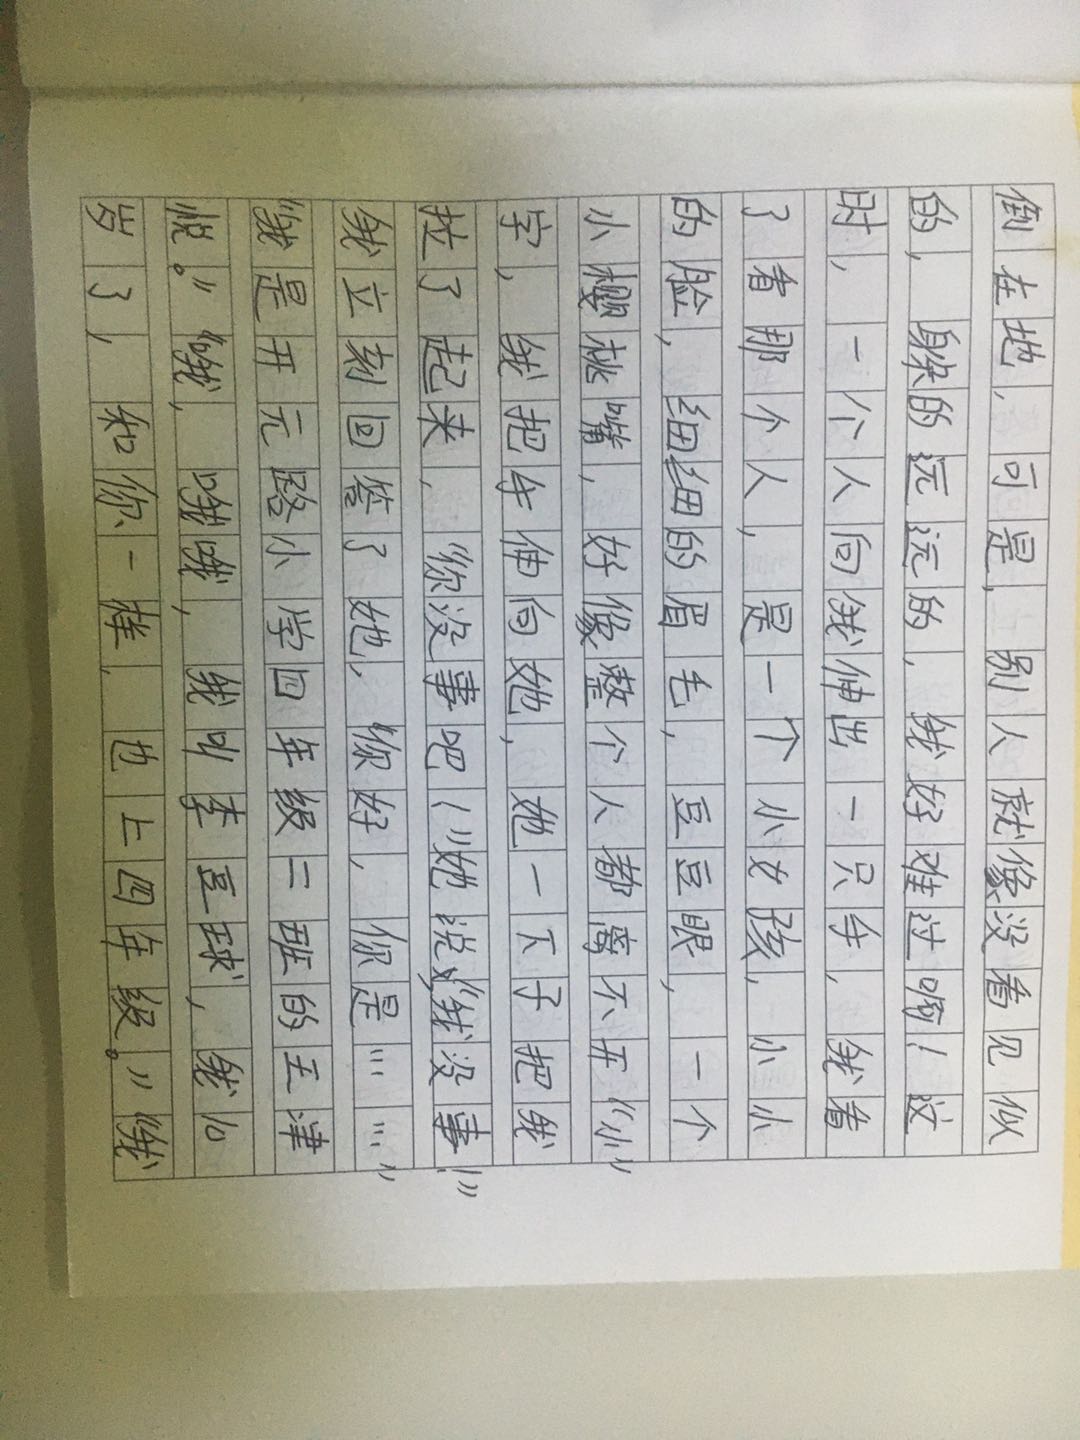 倒在地，可是，别人就像没看见似
的，躲的远远的，我好难过啊！这
时，一个人向我伸出一只手，我看
了看那个人，是一个小女孩，小小
的脸，细细的眉毛，豆豆眼，一个
小樱桃嘴，好像整个人都离不开“小”
字，我把手伸向她，她一下子把我
拉了起来，“你没事吧！”她说，“我没事！”
我立刻回答了她，“你好，你是……”
“我是开元路小学四年级二班的王津
悦。”“哦，哦哦，我叫李豆球，我10
岁了，和你一样，也上四年级。”“哦